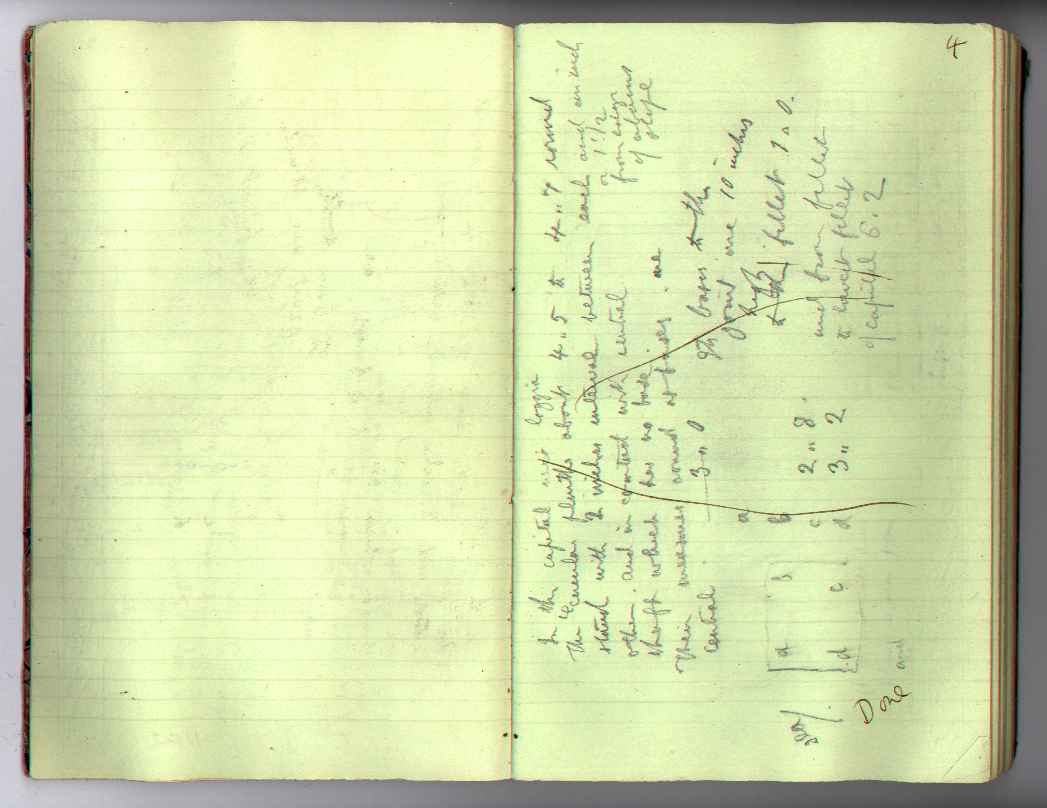 4
In the capital loggia
The circular plinths about 4..5 to 4..7 round
stand with 2 inches interval between each and an inch
or 1 1/2
from edge
of slope
other. and in contact with central
shaft which has no base
Their measures round at bases are
central 3..0
The basis to the
joint are 10 inches
high
to fillet 1..0.
and from fillet
to lowest fillet
of capital 6.2
a
b
c 2..8.
d 3..2
a b
d c
and
Done